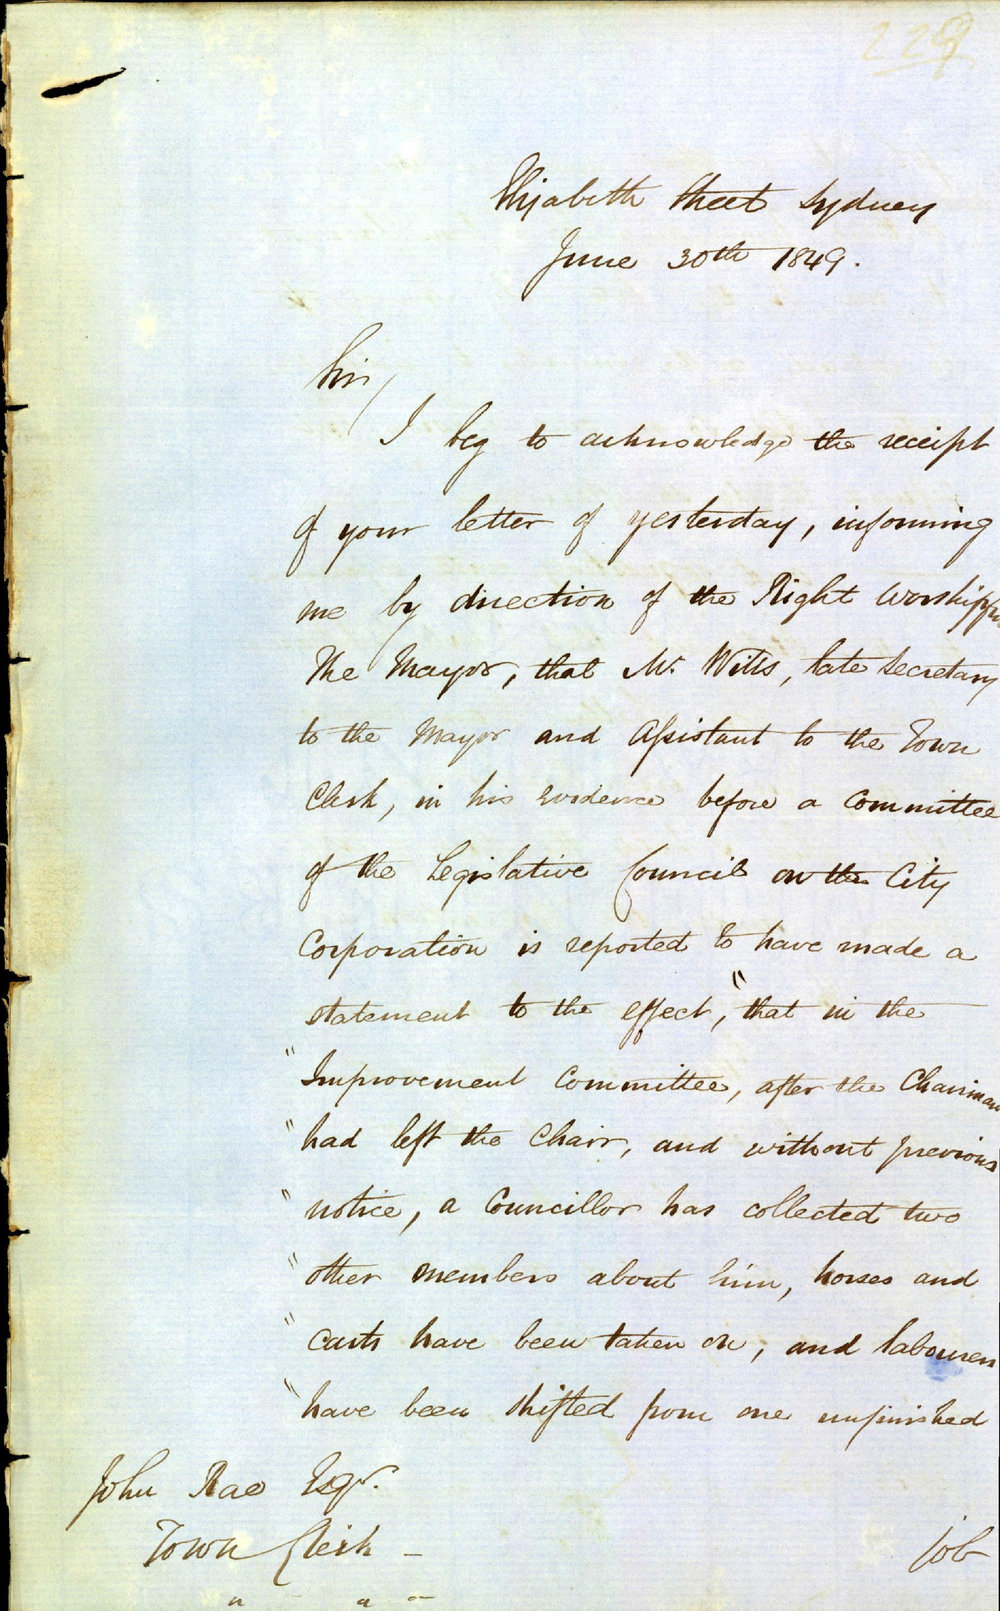 229
Elizabeth Street Sydney
June 30th 1849.
Sir,
I beg to acknowledge the receipt
of your letter of yesterday, informing
me by direction of the Right Worshipful
The Mayor, that Mr. Wills, late Secretary
to the Mayor and Assistant to the Town
Clerk, in his evidence before a Committee
of the Legislative Council on the City
Corporation is reported to have made a
statement to the effect, "that in the
"Improvement Committee, after the Chairman
"had left the Chair, and without previous
"notice, a Councillor has collected two
"other members about him, horses and
"carts have been taken on, and labourers
"have been shifted from one unfinished
John Rae Esqr.
Town Clerk –
job